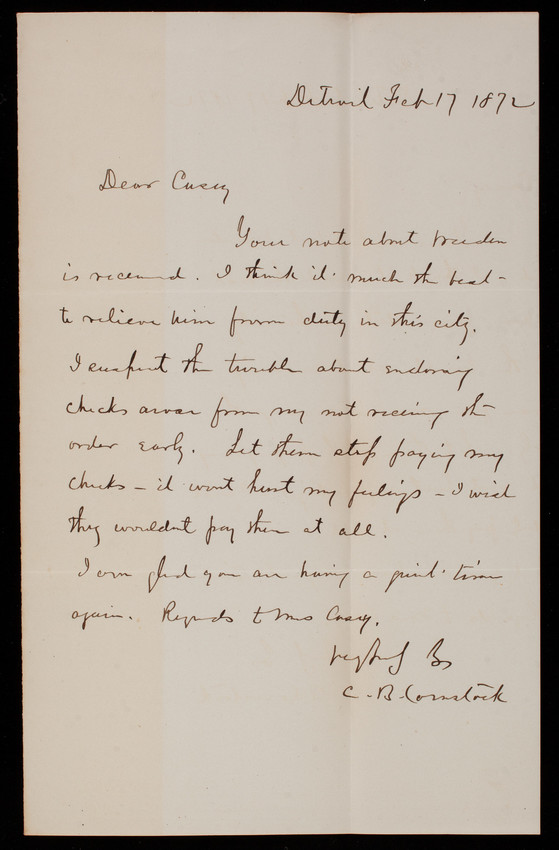 Detroit Feb 17 1872
Dear Casey
Your note about
is received. I think it much the best
to relieve him from duty in this city.
I suspect the trouble about endorsing
checks arose from my not receiving the
order early. Let them stop paying my
checks – it wont hurt my feelings – I wish
they wouldnt pay them at all.
I am glad you are having a quiet time
again. Regards to Mrs Casey.
C. B. Comstock